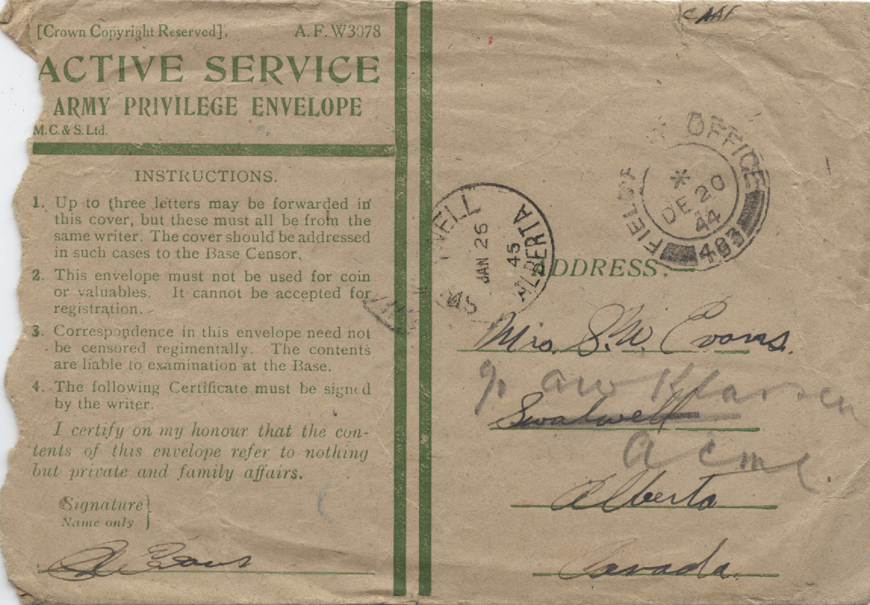 [Crown Copyright Reserved]. A. F. W3078
ACTIVE SERVICE
ARMY PRIVILEGE ENVELOPE
M.C. & S. Ltd.
INSTRUCTIONS.
1. Up to three letters may be forwarded in
this cover, but these must all be from the
same writer. The cover should be addressed
in such cases to the Base Censor.
2. This envelope must not be used for coin
or valuables. It cannot be accepted for
registration.
3. Correspondence in this envelope need not
be censored regimentally. The contents
are liable to examination at the Base.
4. The following Certificate must be signed
by the writer.
I certify on my honour that the con-
tents of this envelope refer to nothing
but private and family affairs.
Signature
Name only
Evans
CAAF
FIELD OFFICE
*
DE 20
44
483
JAN 26
45
ALBERTA
ADDRESS:—
Mrs. S.W. Evans.
c/o A W Klassen
Swalwell
Acme
Alberta
Canada.